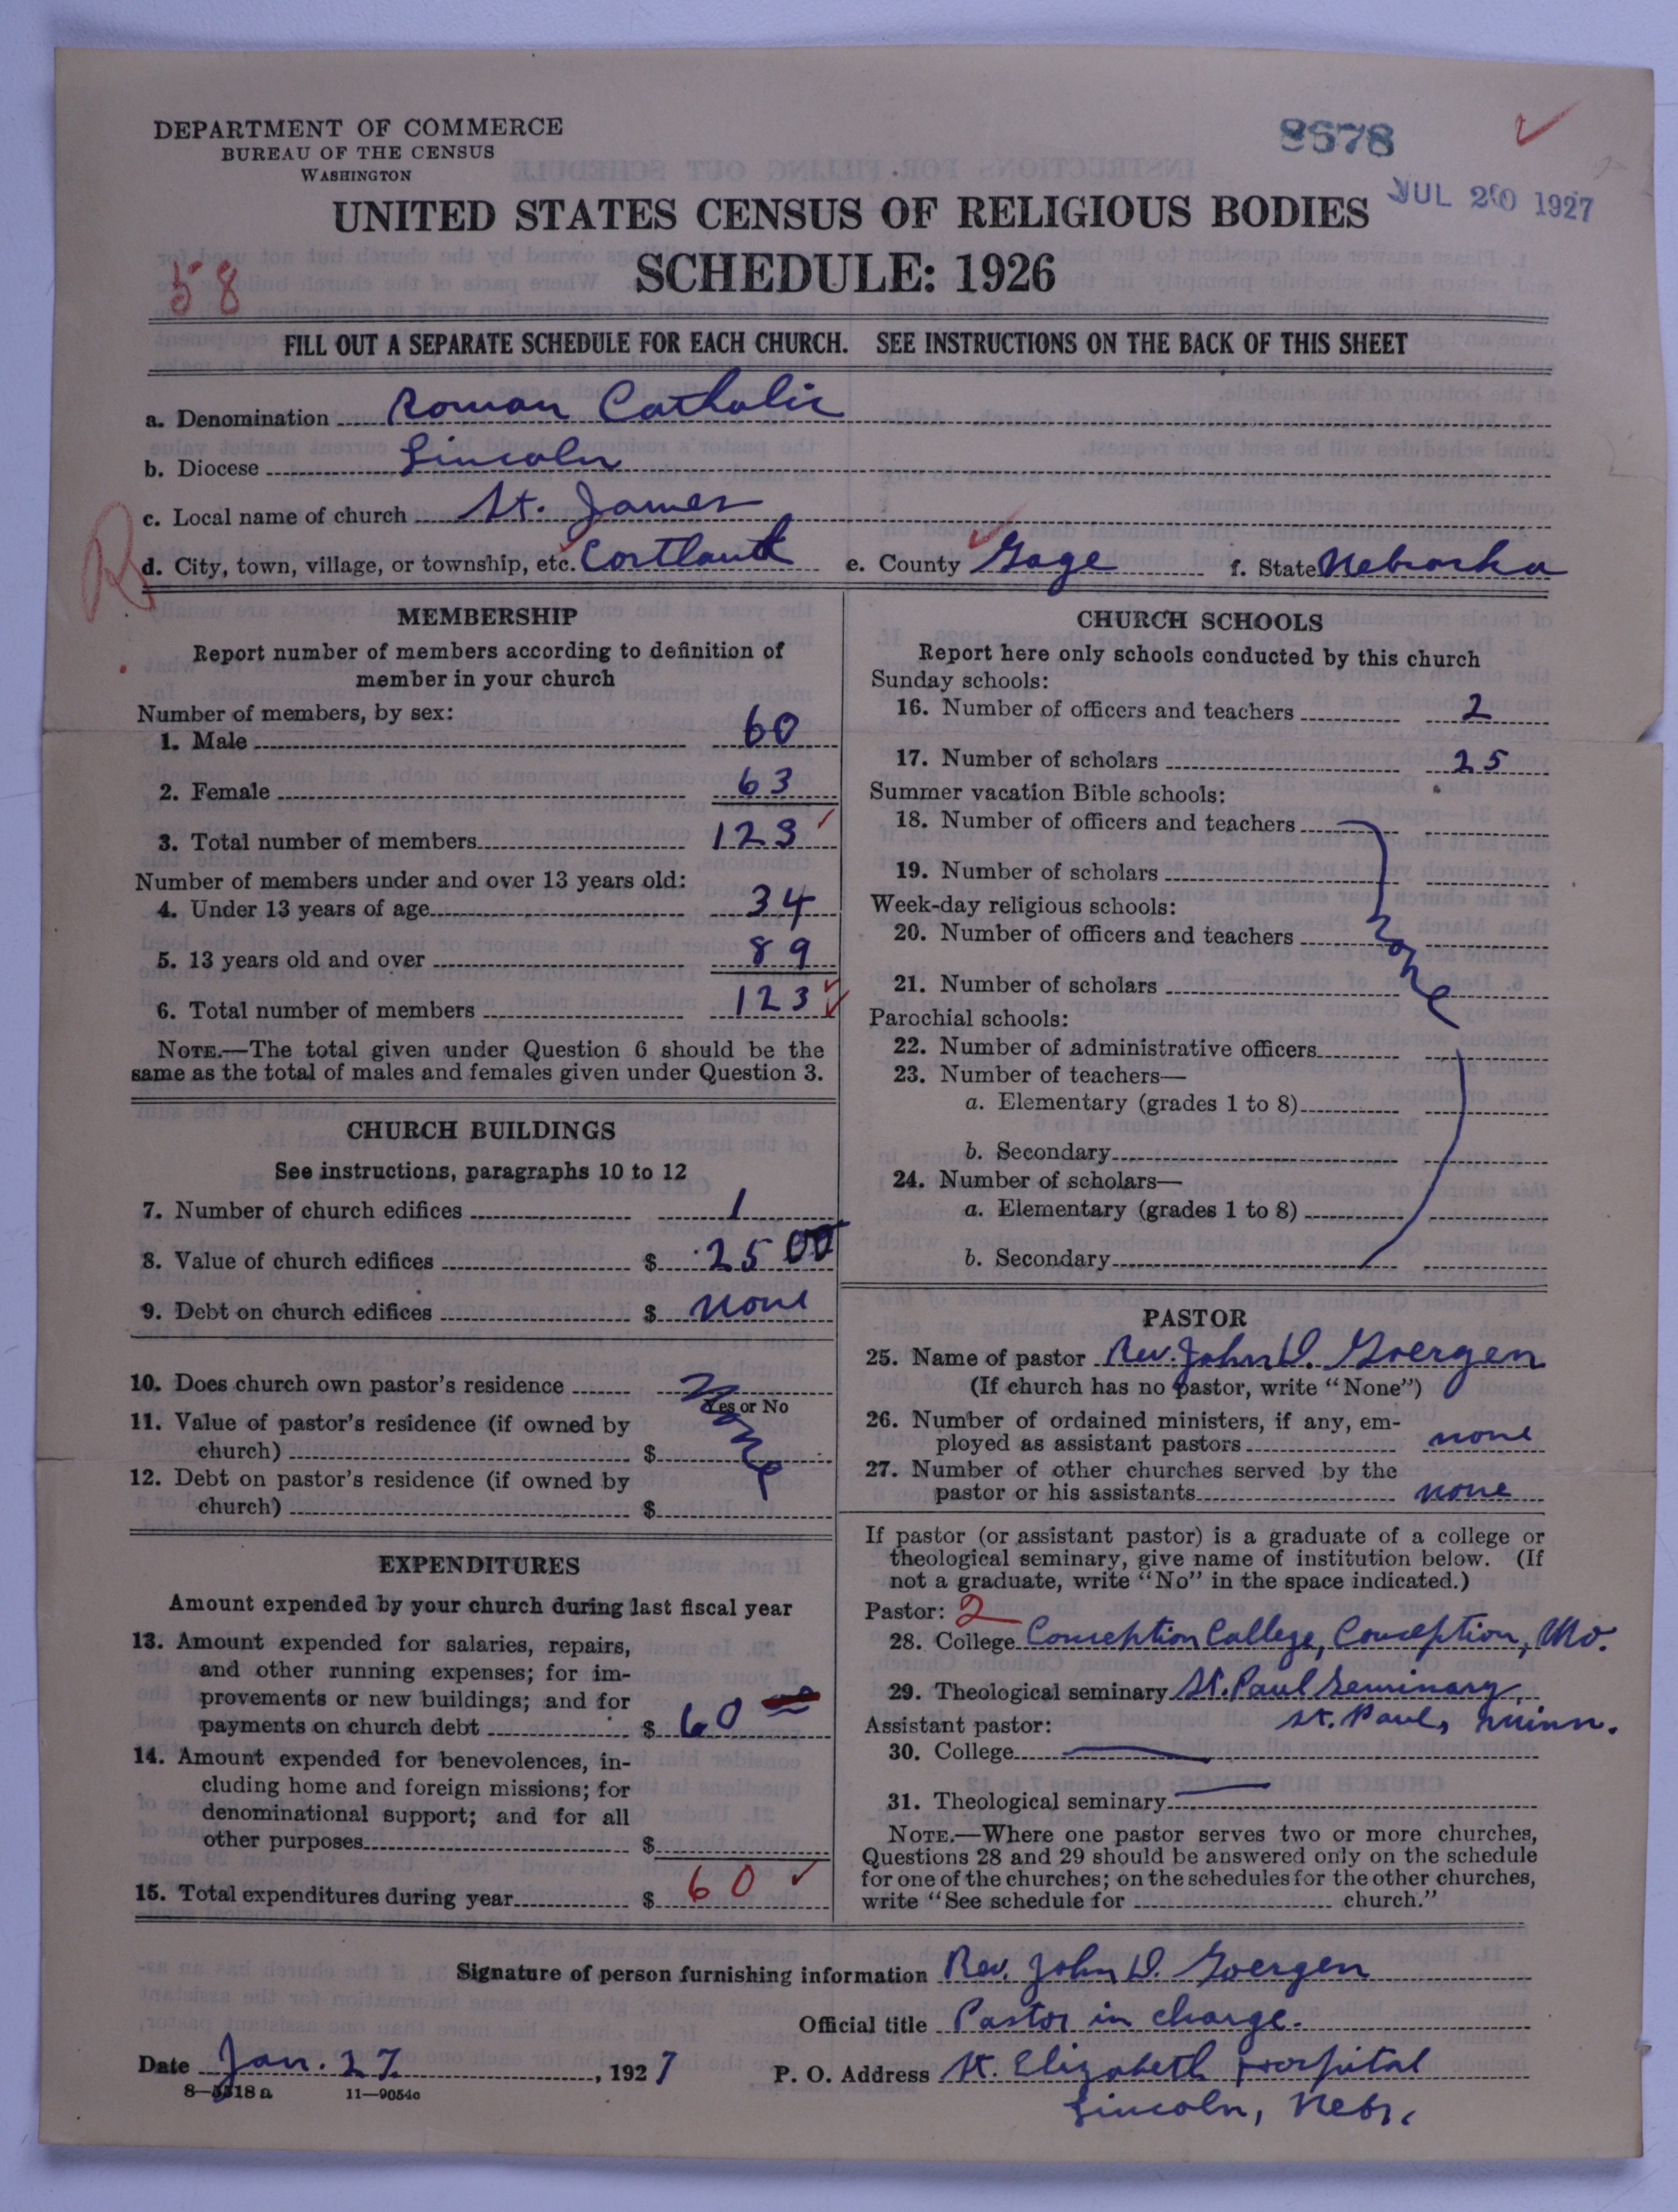 DEPARTMENT OF COMMERCE
BUREAU OF THE CENSUS
WASHINGTON
8678
JUL 20 1927
UNITED STATES CENSUS OF RELIGIOUS BODIES
SCHEDULE: 1926
58
FILL OUT A SEPARATE SCHEDULE FOR EACH CHURCH. SEE INSTRUCTIONS ON THE BACK OF THIS SHEET
a. Denomination Roman Catholic
b. Diocese Lincoln
c. Local name of church St. James
R
d. City, town, village, or township, etc. Cortland e. County Gage f. State Nebraska
MEMBERSHIP
Report number of members according to definition of
member in your church
Number of members, by sex:
1. Male 60
2. Female 63
3. Total number of members 123
Number of members under and over 13 years old:
4. Under 13 years of age 34
5. 13 years old and over 89
6. Total number of members 123
NOTE.—The total given under Question 6 should be the
same as the total of males and females given under Question 3.
CHURCH BUILDINGS
See instructions, paragraphs 10 to 12
7. Number of church edifices 1
8. Value of church edifices $ 2500
9. Debt on church edifices $ none
10. Does church own pastor's residence None
Yes or No
11. Value of pastor's residence (if owned by
church) $
12. Debt on pastor's residence (if owned by
church) $
EXPENDITURES
Amount expended by your church during last fiscal year
13. Amount expended for salaries, repairs,
and other running expenses; for im-
provements or new buildings; and for
payments on church debt $ 60
14. Amount expended for benevolences, in-
cluding home and foreign missions; for
denominational support; and for all
other purposes $
15. Total expenditures during year $ 60
CHURCH SCHOOLS
Report here only schools conducted by this church
Sunday schools:
16. Number of officers and teachers 2
17. Number of scholars 25
Summer vacation Bible schools:
18. Number of officers and teachers
19. Number of scholars
Week-day religious schools:
20. Number of officers and teachers none
21. Number of scholars
Parochial schools:
22. Number of administrative officers
23. Number of teachers—
a. Elementary (grades 1 to 8)
b. Secondary
24. Number of scholars—
a. Elementary (grades 1 to 8)
b. Secondary
PASTOR
25. Name of pastor Rev. John D. Goergen
(If church has no pastor, write "None")
26. Number of ordained ministers, if any, em-
ployed as assistant pastors none
27. Number of other churches served by the
pastor or his assistants none
If pastor (or assistant pastor) is a graduate of a college or
theological seminary, give name of institution below. (If
not a graduate, write "No" in the space indicated.)
Pastor: 2
28. College Conception College, Conception, Mo.
29. Theological seminary St. Paul Seminary,
St. Paul, Minn.
Assistant pastor:
30. College
31. Theological seminary
NOTE.—Where one pastor serves two or more churches,
Questions 28 and 29 should be answered only on the schedule
for one of the churches; on the schedules for the other churches,
write "See schedule for church."
Signature of person furnishing information Rev. John D. Goergen
Official title Pastor in charge.
Date Jan. 27, 1927 P. O. Address St. Elizabeth Hospital
Lincoln, Nebr.
8—5318a 11—9054c